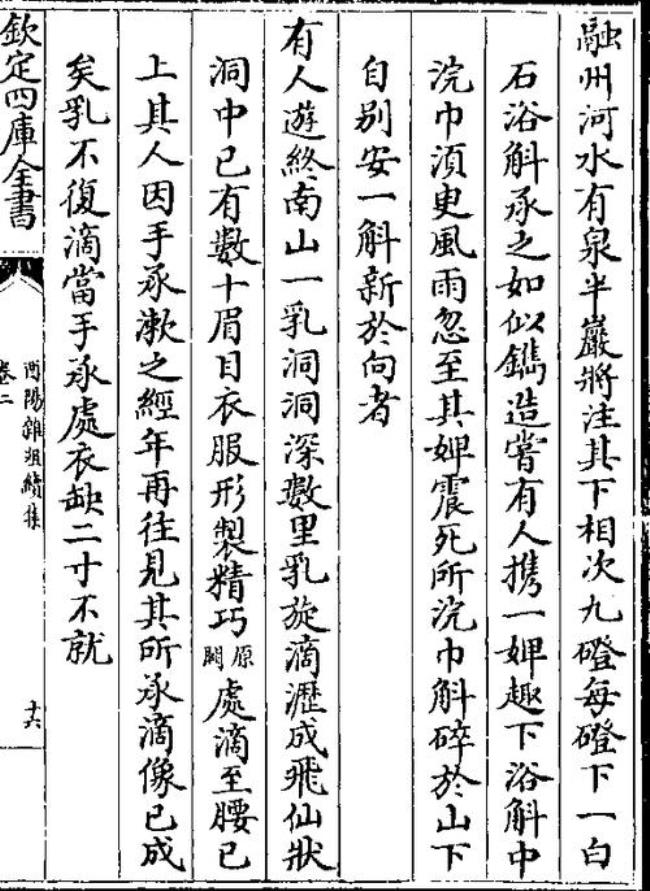 融州河水有泉半巖將注其下相次九磴每磴下一白
石浴斛承之如似鐫造嘗有人携一婢趣下浴斛中
浣巾湏㬰風雨忽至其婢震死所浣巾斛碎於山下
自别安一斛新於向者
有人遊終南山一乳洞洞深數里乳旋滴瀝成飛仙狀
洞中已有數十眉目衣服形製精巧原闕處滴至腰已
上其人因手承漱之經年再往見其所承滴像已成
矣乳不復滴當手承處衣缺二寸不就
欽定四庫全書
酉陽雜俎續集
卷二
十六